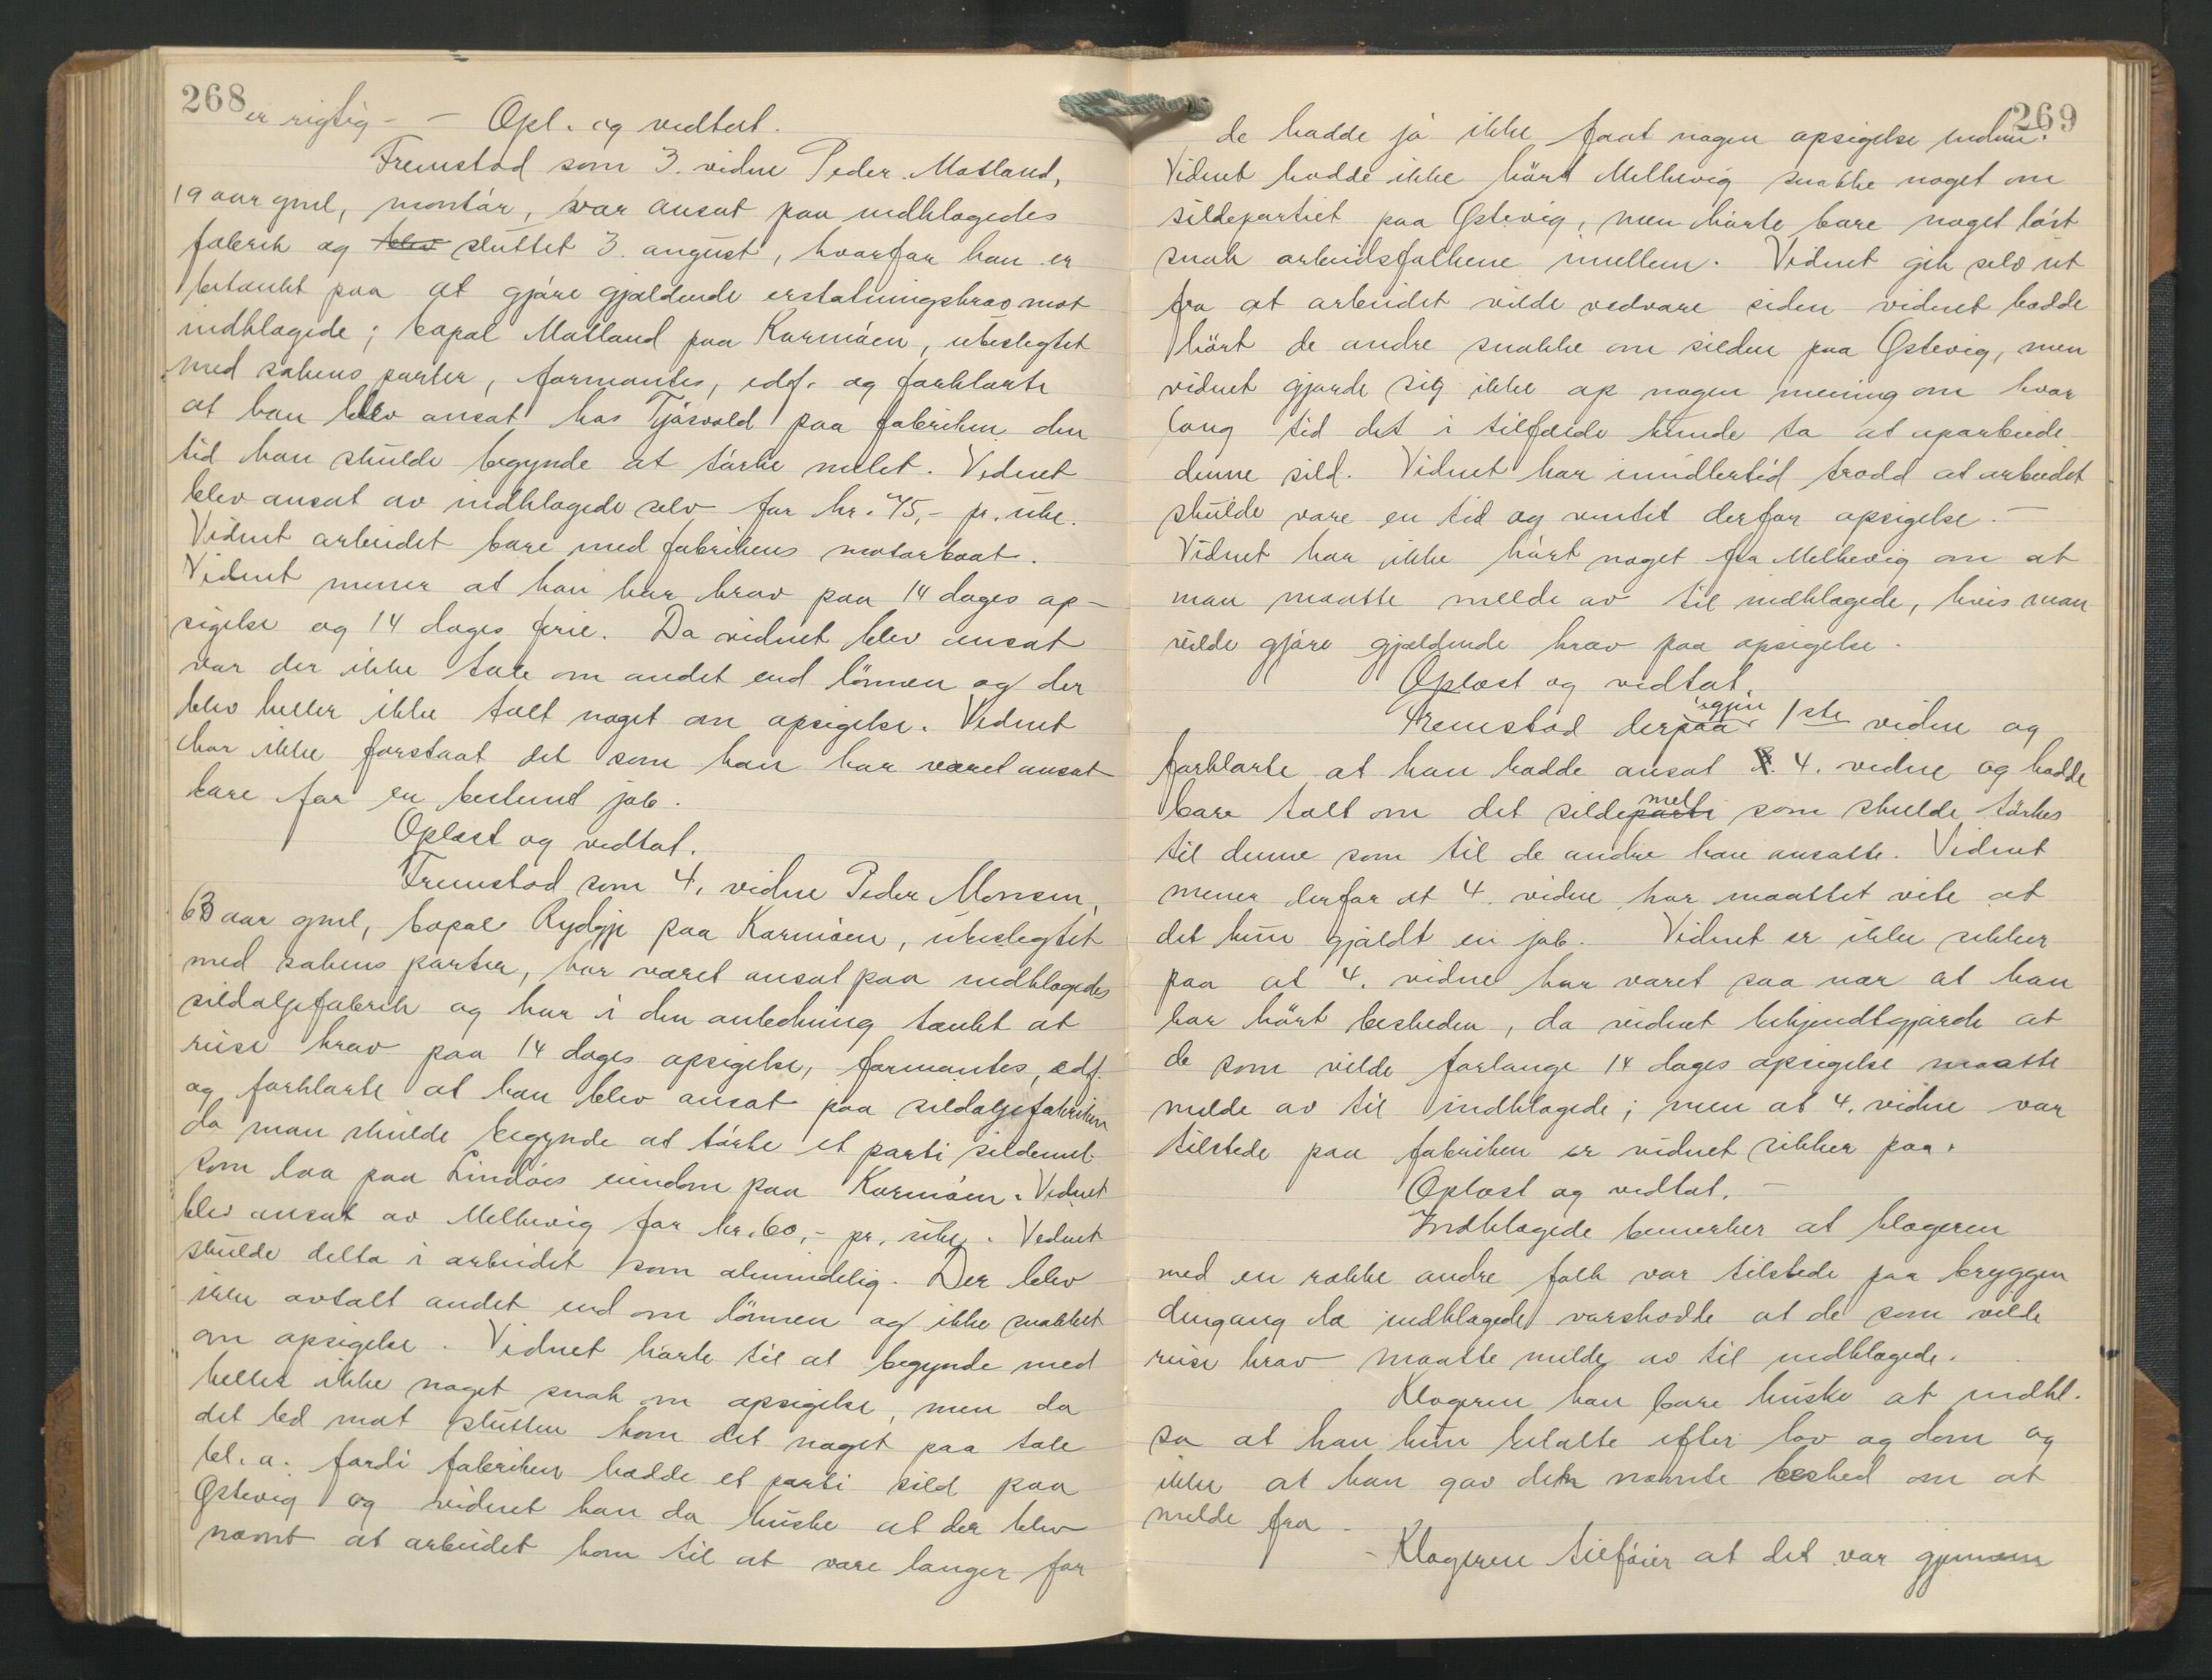 268
er rigtig - - Opl. og vedtat.
Fremstod som 3. vidne Peder Matland,
19 aar gml, montör, var ansat paa indklagedes
fabrik og blev sluttet 3. august, hvorfor han er
betænkt paa at gjöre gjældende erstatningskrav mot
indklagede; bopæl Matland paa Karmöen, ubeslegtet
med sakens parter, formantes, edf. og forklarte
at han blev ansat hos Tjösvold paa fabriken den
tid han skulde begynde at törke melet. Vidnet
blev ansat av indklagede selv for kr. 45,- pr. uke.
Vidnet arbeidet bare med fabrikens motorbaat.
Vidnet mener at han har krav paa 14 dages op-
sigelse og 14 dages ferie. Da vidnet blev ansat
var der ikke tale om andet end lönnen og der
blev heller ikke talt noget om opsigelse. Vidnet
har ikke forstaat det som han har været ansat
bare for en bestemt job.
Oplæst og vedtat.
Fremstod som 4. vidne Peder Monsen,
63 aar gml, bopæl Rydgje paa Karmöen, ubeslegtet
med sakens parter, har været ansat paa indklagedes
sildoljefabrik og har i den anledning tænkt at
reise krav paa 14 dages opsigelse, formantes, edf.
og forklarte at han blev ansat paa sildoljefabriken
da man skulde begynde at törke et parti sildemel
som laa paa Lindöes eiendom paa Karmöen. Vidnet
blev ansat av Melhevig for kr. 60,- pr. uke. Vidnet
skulde delta i arbeidet som almindelig. Der blev
ikke avtalt andet end om lönnen og ikke snakket
om opsigelse. Vidnet hörte til at begynde med
heller ikke noget snak om opsigelse, men da
det led mot slutten kom det noget paa tale
bl. a. fordi fabriken hadde et parti sild paa
Ostevig og vidnet kan da huske at der blev
nævnt at arbeidet kom til at vare længer for
269
de hadde jo ikke faat nogen opsigelse endnu.
Vidnet hadde ikke hört Melhevig snakke noget om
sildepartiet paa Ostevig, men hörte bare noget löst
snak arbeidsfolkene imellem. Vidnet gik selv ut
fra at arbeidet vilde vedvare siden vidnet hadde
hört de andre snakke om silden paa Ostevig, men
vidnet gjorde sig ikke op nogen mening om hvor
lang tid det i tilfælde kunde ta at oparbeide
denne sild. Vidnet har imidlertid trodd at arbeidet
skulde vare en tid og ventet derfor opsigelse. -
Vidnet har ikke hört noget fra Melhevig om at
man maatte melde av til indklagede, hvis man
vilde gjöre gjældende krav paa opsigelse.
Oplæst og vedtat.
Fremstod derpaa igjen 1ste vidne og
forklarte at han hadde ansat 4. vidne og hadde
bare talt om det sildeparti mel som skulde törkes
til denne som til de andre han ansatte. Vidnet
mener derfor at 4. vidne har maattet vite at
det kun gjaldt en job. Vidnet er ikke sikker
paa at 4. vidne har været saa nær at han
har hört beskeden, da vidnet bekjendtgjorde at
de som vilde forlange 14 dages opsigelse maatte
melde av til indklagede; men at 4. vidne var
tilstede paa fabriken er vidnet sikker paa.
Oplæst og vedtat. -
Indklagede bemerker at klageren
med en række andre folk var tilstede paa bryggen
dengang da indklagede varskodde at de som vilde
reise krav maatte melde av til indklagede.
Klageren kan bare huske at indkl.
sa at han kun betalte efter lov og dom og
ikke at han gav den nævnte besked om at
melde fra -
- Klageren tilföier at det var gjennem